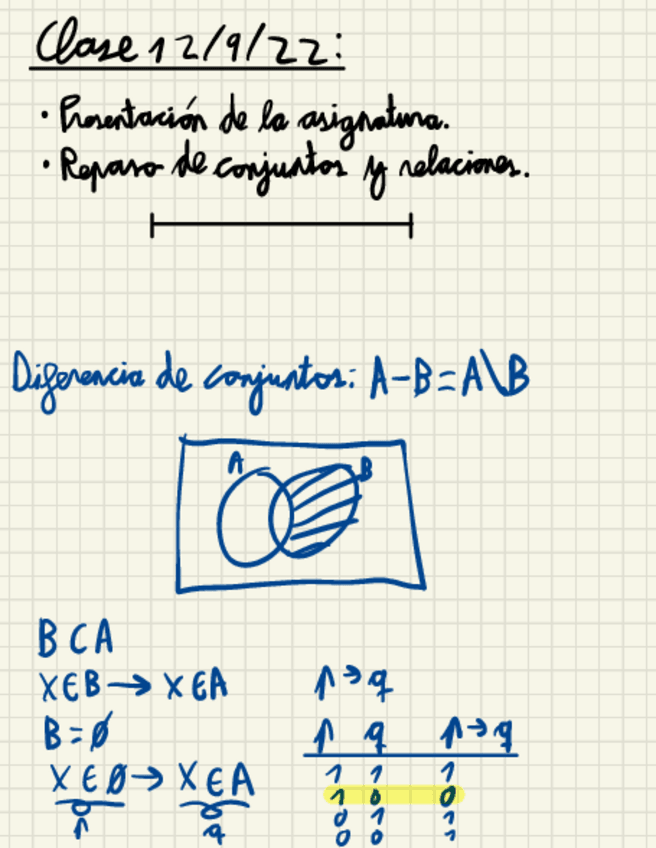 Clase 12/9/22:
· Presentación de la asignatura.
· Repaso de conjuntos y relaciones.
Diferencia de conjuntos: A-B=A\B
A B
B⊂A
x∈B→x∈A
B=∅
x∈∅→x∈A
p q
p→q
p q p→q
1 1 1
1 0 0
0 1 1
0 0 1